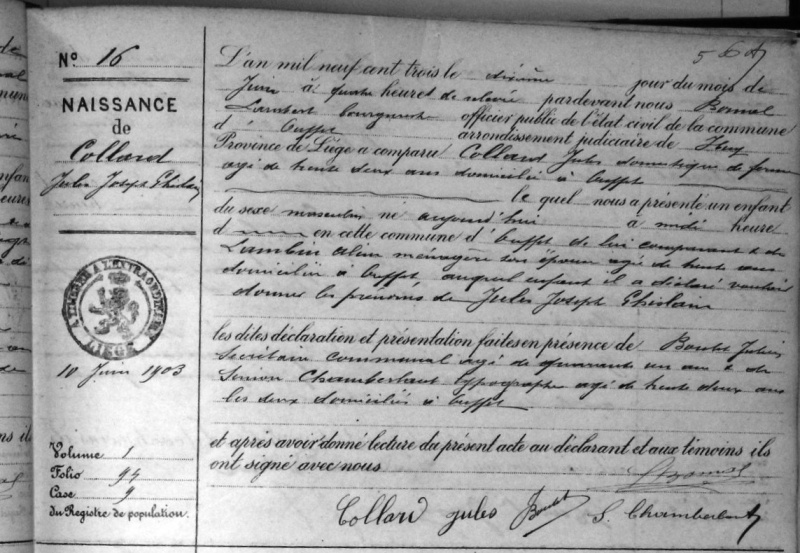 5
Nº 16
NAISSANCE
de
Collard
Jules Joseph Ghislain
TIMBRE A L'EXTRAORDINAIRE
LIEGE
10 Juin 1903
Volume 1
Folio 94
Case 9
du Registre de population.
L'an mil neuf cent trois le dixième jour du mois de
Juin à quatre heures de relevée pardevant nous
Lambert bourgmestre officier public de l'état civil de la commune
d' Ouffet arrondissement judiciaire de Huy
Province de Liège a comparu Collard Jules domestique de ferme
agé de trente deux ans domicilié à Ouffet
le quel nous a présenté un enfant
du sexe masculin né aujourd'hui à midi heure
d en cette commune d' Ouffet de lui comparant & de
Lambin ménagère son épouse agée de trente ans
domiciliée à Ouffet auquel enfant il a déclaré vouloir
donner les prénoms de Jules Joseph Ghislain
les dites déclaration et présentation faites en présence de Boulet Julien
Secrétaire communal agé de quarante un ans & de
Simon Chamberlant typographe agé de trente deux ans
les deux domiciliés à Ouffet
et après avoir donné lecture du présent acte au déclarant et aux témoins ils
ont signé avec nous
Collard Jules Boulet S. Chamberlant